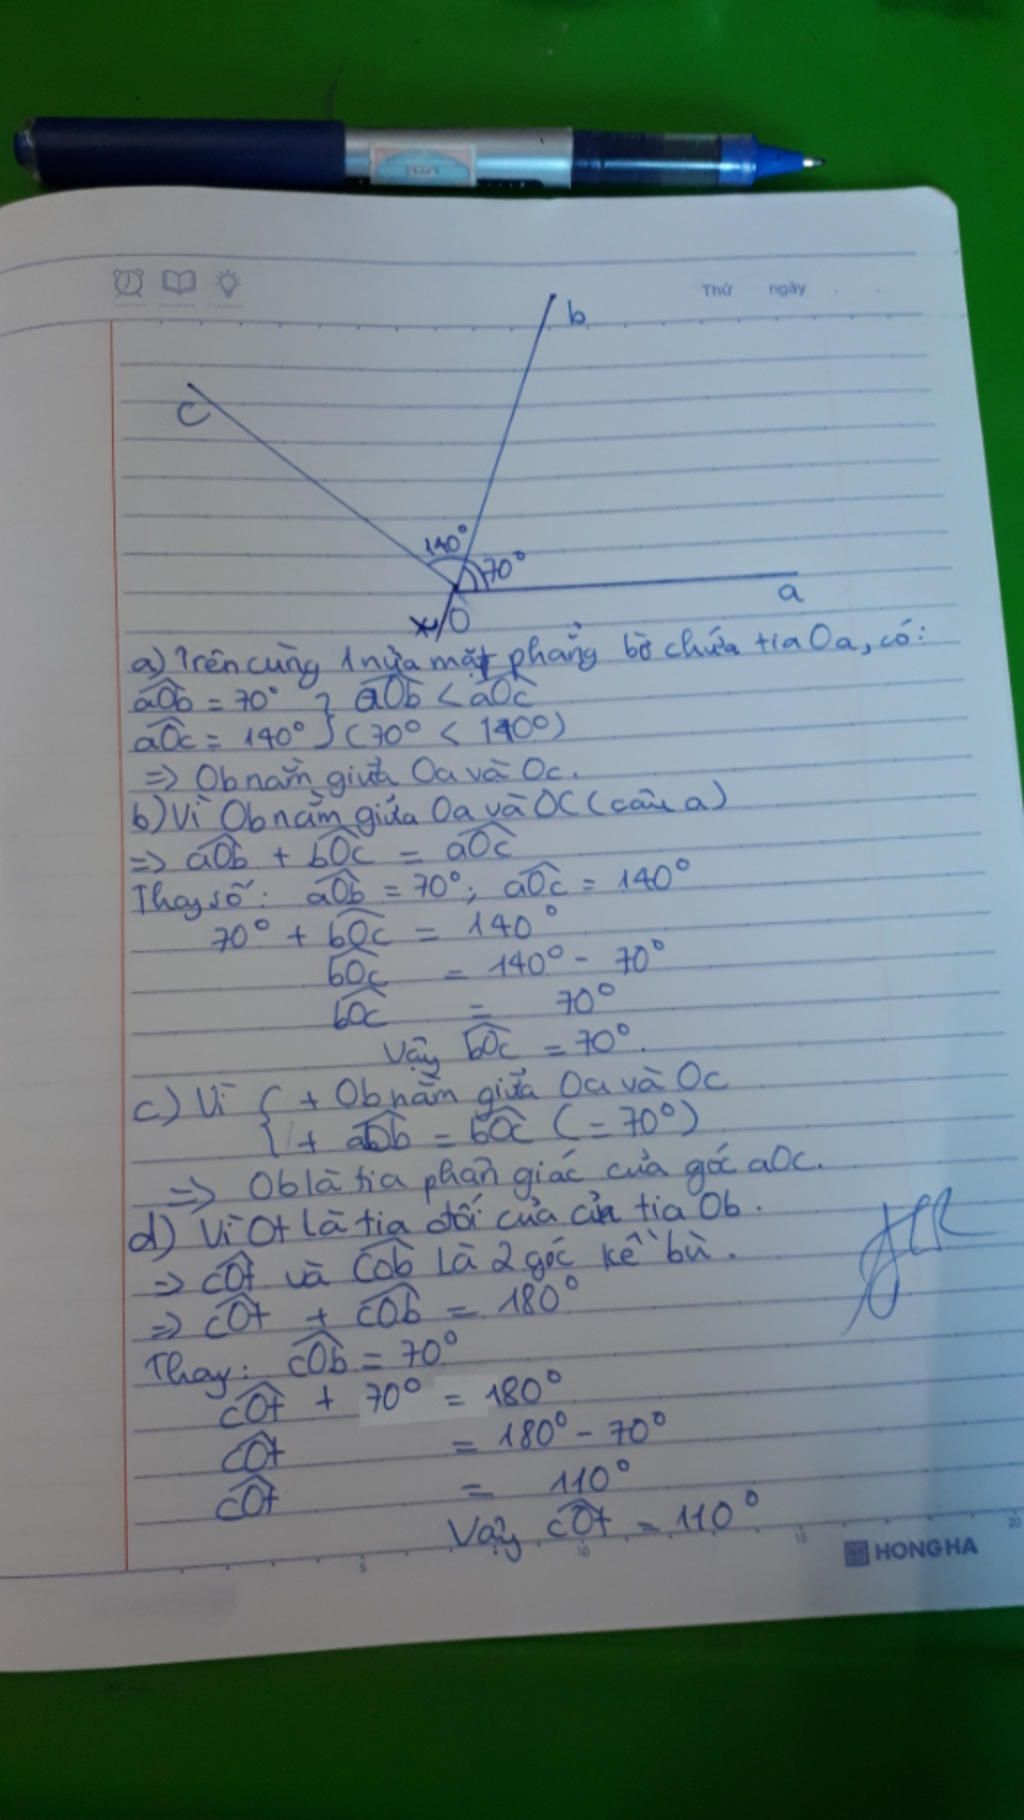 Thứ ngày
b
C
140°
70°
a
O
a) Trên cùng 1 nửa mặt phẳng bờ chứa tia Oa, có:
aOb = 70° } aOb < aOc
aOc = 140° } (70° < 140°)
=> Ob nằm giữa Oa và Oc.
b) Vì Ob nằm giữa Oa và OC (câu a)
=> aOb + bOc = aOc
Thay số: aOb = 70°; aOc = 140°
70° + bOc = 140°
bOc = 140° - 70°
bOc = 70°
Vậy bOc = 70°.
c) Vì { + Ob nằm giữa Oa và Oc
{ + aOb = bOc (= 70°)
=> Ob là tia phân giác của góc aOc.
d) Vì Ot là tia đối của của tia Ob.
=> cOt và cOb là 2 góc kề bù.
=> cOt + cOb = 180°
Thay: cOb = 70°
cOt + 70° = 180°
cOt = 180° - 70°
cOt = 110°
Vậy cOt = 110°
5 10 15 20
HONG HA